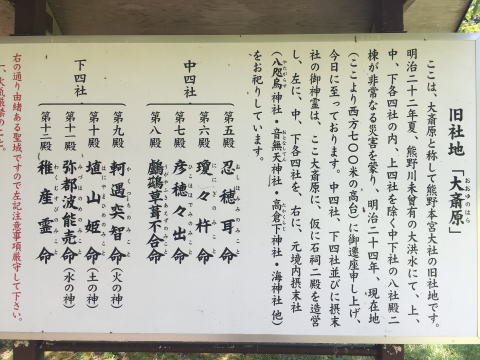 旧社地「大斎原」
おおゆのはら
ここは、大斎原と称して熊野本宮大社の旧社地です。
明治二十二年夏、熊野川未曾有の大洪水にて、上、
中、下各四社の内、上四社を除く中下社の八社殿二
棟が非常なる災害を蒙り、明治二十四年、現在地
(ここより西方七〇〇米の高台)に御遷座申し上げ、
今日に至っております。中四社、下四社並びに摂末
社の御神霊は、ここ大斎原に、仮に石祠二殿を造営
し、左に、中、下各四社を、右に、元境内摂末社
(八咫烏神社・音無天神社・高倉下神社・海神社 他)
をお祀りしています。
中四社
第五殿 忍穂耳命
第六殿 瓊々杵命
第七殿 彦穂々出命
第八殿 鸕鷀草葺不合命
下四社
第九殿 軻遇突智命(火の神)
第十殿 埴山姫命(土の神)
第十一殿 弥都波能売命(水の神)
第十二殿 稚産霊命
右の通り由緒ある聖域ですので左記注意事項厳守して下さい。
一、火気厳禁のこと。